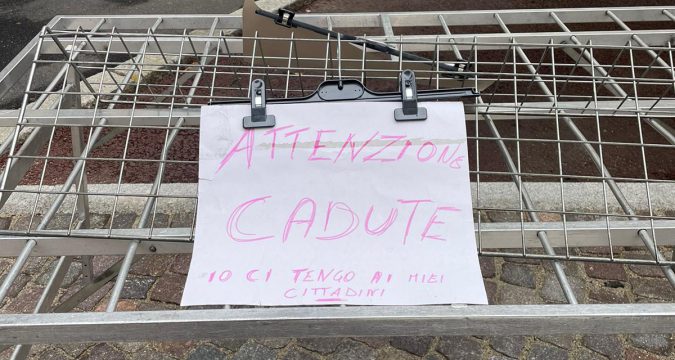 ATTENZIONE
CADUTE
IO CI TENGO AI MIEI
CITTADINI